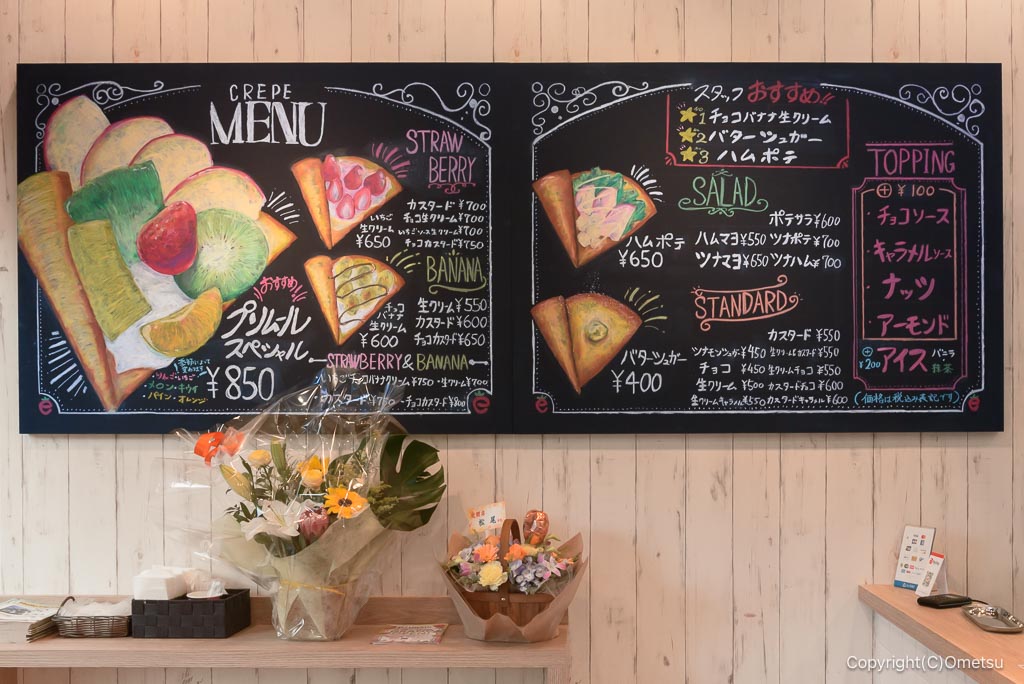 CREPE
MENU
おすすめ
プリムール
スペシャル
¥850
りんご・いちご
メロン・キウイ
パイン・オレンジ
STRAW
BERRY
カスタード ¥700
いちご チョコ生クリーム ¥700
生クリーム いちごソース生クリーム ¥700
¥650 チョコカスタード ¥750
BANANA
チョコ
バナナ
生クリーム
¥600
生クリーム ¥550
カスタード ¥600
チョコカスタード ¥650
STRAWBERRY & BANANA
いちごチョコバナナクリーム ¥750 ・生クリーム ¥700
・カスタード ¥750 ・チョコカスタード ¥800
スタッフ おすすめ!!
★1 チョコバナナ生クリーム
★2 バターシュガー
★3 ハムポテ
SALAD
ハムポテ
¥650
ポテサラ ¥600
ハムマヨ ¥550 ツナポテ ¥700
ツナマヨ ¥650 ツナハム ¥700
STANDARD
バターシュガー
¥400
カスタード ¥550
シナモンシュガー ¥450 生クリーム&カスタード ¥550
チョコ ¥450 生クリームチョコ ¥550
生クリーム ¥500 カスタードチョコ ¥600
生クリームキャラメル ¥550 カスタードキャラメル ¥600
TOPPING
⊕ ¥100
・チョコソース
・キャラメルソース
・ナッツ
・アーモンド
⊕ ¥200 アイス バニラ 抹茶
(価格は税込み表記です)
松尾
Copyright(C)Ometsu